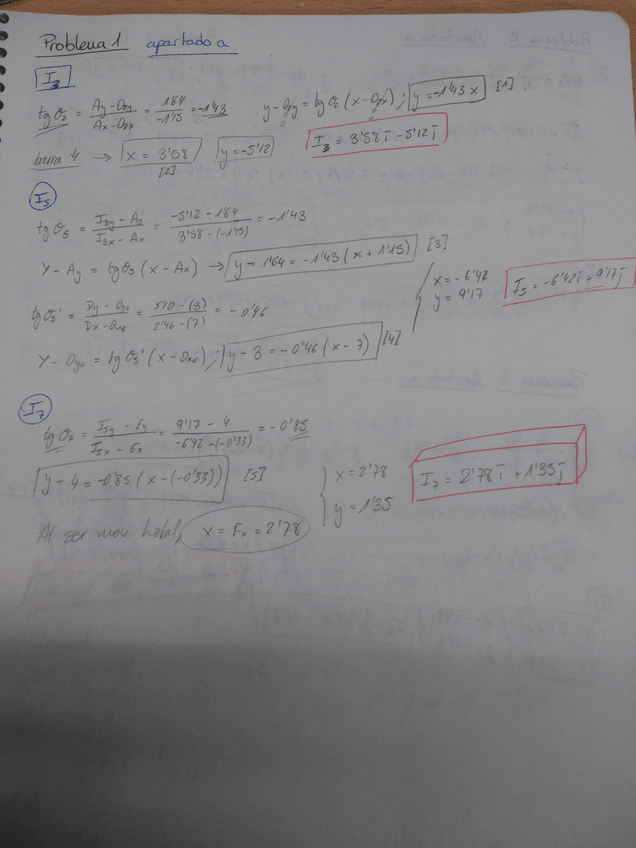 Problema 1 apartado a
I₃
tg θ₂ = (Ay - O₂y)/(Ax - O₂x) = 1'64/-1'15 = -1'43 y - O₂y = tg θ₂ (x - O₂x) ; y = -1'43 x [1]
0 0
barra 4 → x = 3'58 y = -5'12 I₃ = 3'58 i - 5'12 j
[2]
I₅
tg θ₅ = (I₃y - Ay)/(I₃x - Ax) = (-5'12 - 1'64)/(3'58 - (-1'15)) = -1'43
Y - Ay = tg θ₅ (x - Ax) → y - 1'64 = -1'43 (x + 1'15) [3]
x = -6'42
y = 9'17
I₅ = -6'42 i + 9'17 j
tg θ₅' = (Dy - O₆y)/(Dx - O₆x) = (5'10 - (3))/(2'46 - (7)) = -0'46
Y - Oy₆ = tg θ₅' (x - Ox₆) ; y - 3 = -0'46 (x - 7) [4]
I₇
tg θ₇ = (I₅y - Ey)/(I₅x - Ex) = (9'17 - 4)/(-6'42 - (-0'33)) = -0'85
y - 4 = -0'85 (x - (-0'33)) [5]
x = 2'78
y = 1'35
I₇ = 2'78 i + 1'35 j
Al ser mov hztal, x = Fx = 2'78